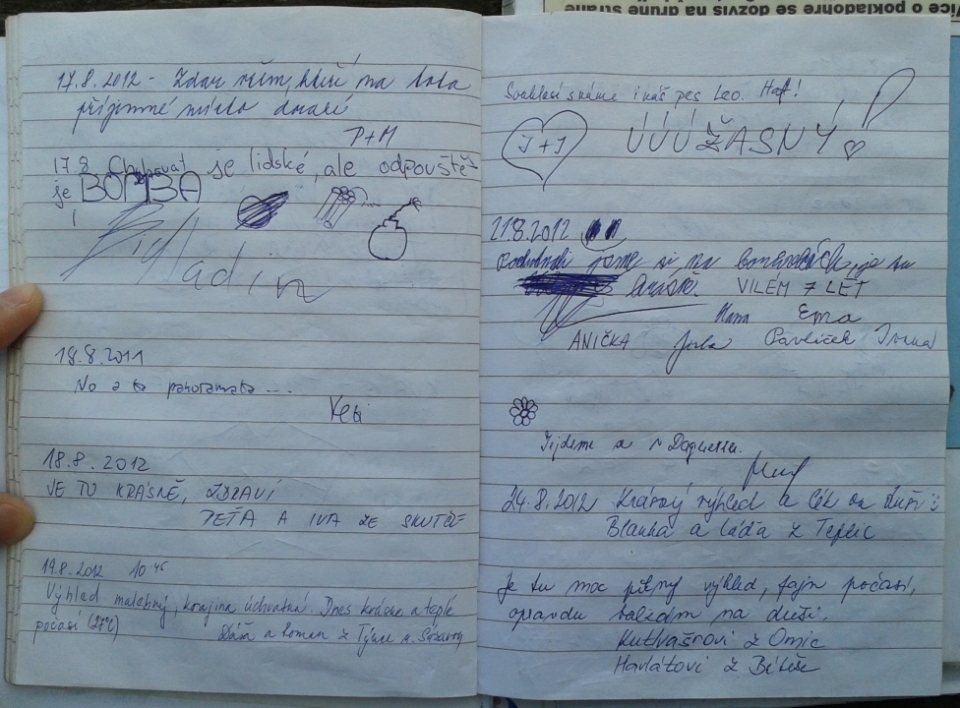 Více o pokladohře se dozvíš na druhé straně
17.8.2012 - Zdar všem, kteří na toto
příjemné místo dorazí
P+M
17.8. Chybovat je lidské, ale odpouště-
je BOMBA
!
Vladin
18.8.2011
No a ta panoramata ...
18.8.2012
JE TU KRÁSNĚ, ZDRAVÍ
PEŤA A IVA ZE SKUTČE
19.8.2012 10:45
Výhled malebný, krajina úchvatná. Dnes krásné a teplé
počasí (27°C)
Dáša a Roman z Týnce n. Sázavou
Souhlasí s námi i náš pes Leo. Haf!
J + J
ÚÚÚŽASNÝ
21.8.2012
jsme si na
VILEM 7 LET
Hana Ema
ANIČKA Pavlíček Ivana
Jijdeme a
24.8.2012 Krásný výhled a lék na duši :)
Blanka a Láďa z Teplic
Je tu moc pěkný výhled, fajn počasí,
opravdu balzám na duši.
Kuthvašnovi z Omic
Havlátovi z Bítěše